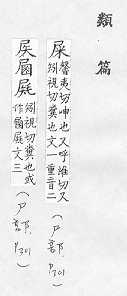 類篇
屎 馨夷切呻也又呼維切又
矧視切糞也文一重音二
(尸部 P.301)
𡱁 矧視切糞也或
作 文三
(尸部 P.301)